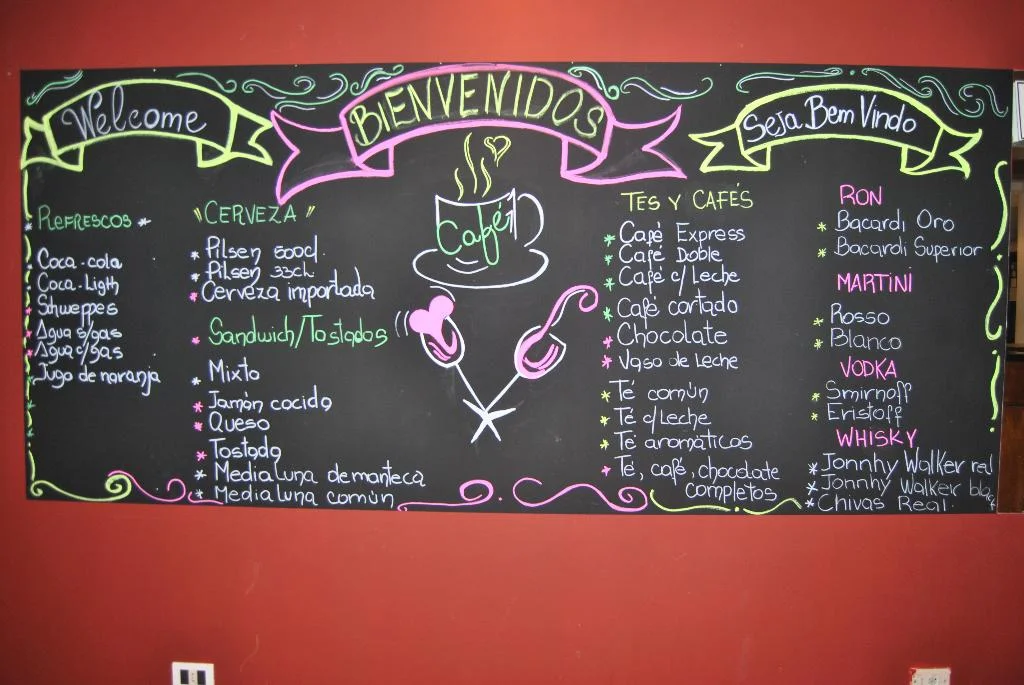 Welcome
BIENVENIDOS
Seja Bem Vindo
Café
REFRESCOS
Coca-cola
Coca-Ligth
Shweppes
Agua s/gas
Agua c/gas
Jugo de naranja
"CERVEZA"
Pilsen 500cl.
Pilsen 33cl.
Cerveza importada
Sandwich/Tostados
Mixto
Jamón cocido
Queso
Tostado
Medialuna de manteca
Medialuna común
TES Y CAFÉS
Café Express
Café Doble
Café c/Leche
Café cortado
Chocolate
Vaso de Leche
Té común
Té c/Leche
Té aromáticos
Té, café, chocolate
completos
RON
Bacardi Oro
Bacardi Superior
MARTINI
Rosso
Blanco
VODKA
Smirnoff
Eristoff
WHISKY
Jonnhy Walker red
Jonnhy Walker black
Chivas Real